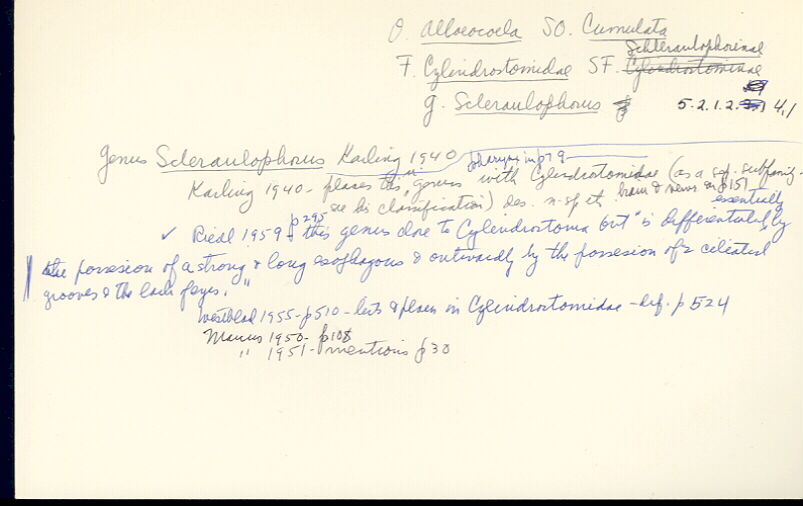 O. Alloeocoela SO. Cumulata
Schleraulophorinae
F. Cylindrostomidae SF. Cylindrostominae
g. Scleraulophorus 5.2.1.2. 4.1
Genus Scleraulophorus Karling 1940 pharynx in p79
Karling 1940 - places this genus with Cylindrostomidae (as a sep. subfamily -
see his classification) des. n. sp. et brain & nerves on p151
essentially
✓ Riedl 1959 - p295 this genus close to Cylindrostoma but "is differentiated by
the possesion of a strong & long esophagous & outwardly by the possesion of 2 ciliated
grooves & the lack of eyes."
Westblad 1955 - p510 - lists & places in Cylindrostomidae - def. p 524
Marcus 1950 - p108
" 1951 - mentions p30